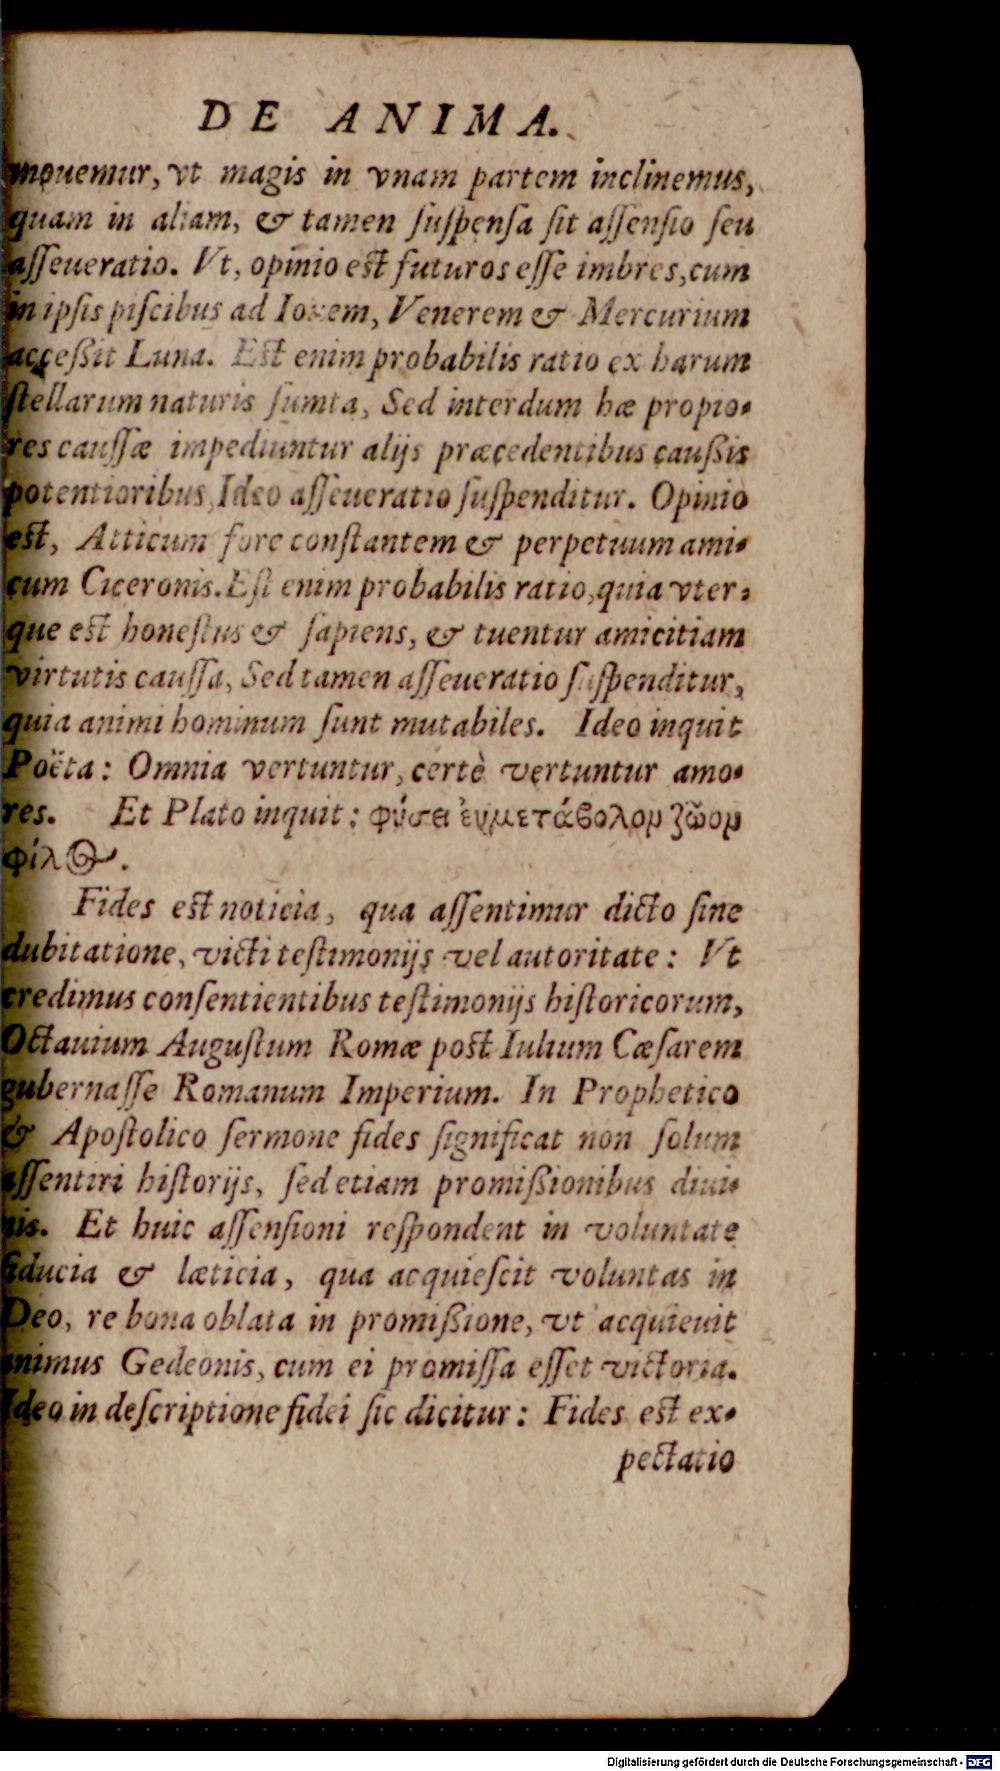 DE ANIMA.
mouemur, vt magis in vnam partem inclinemus,
quam in aliam, & tamen ſuſpenſa ſit aſſenſio ſeu
aſſeueratio. Vt, opinio est futuros eſſe imbres, cum
in ipſis piſcibus ad Iouem, Venerem & Mercurium
acceßit Luna. Est enim probabilis ratio ex harum
ſtellarum naturis ſumta, Sed interdum hæ propio-
res cauſſæ impediuntur alijs præcedentibus cauſsis
potentioribus, Ideo aſſeueratio ſuſpenditur. Opinio
est, Atticum fore conſtantem & perpetuum ami-
cum Ciceronis. Eſt enim probabilis ratio, quia vter-
que est honeſtus & ſapiens, & tuentur amicitiam
virtutis cauſſa, Sed tamen aſſeueratio ſuſpenditur,
quia animi hominum ſunt mutabiles. Ideo inquit
Poëta: Omnia vertuntur, certè vertuntur amo-
res. Et Plato inquit: φύσει ἐυμετάβολομ ζῶομ
φίλος.
Fides est noticia, qua aſſentimur dicto ſine
dubitatione, victi teſtimonijs vel autoritate: Vt
credimus conſentientibus teſtimonijs hiſtoricorum,
Octauium Auguſtum Romæ post Iulium Cæſarem
gubernaſſe Romanum Imperium. In Prophetico
& Apoſtolico ſermone fides ſignificat non ſolum
aſſentiri hiſtorijs, ſed etiam promißionibus diui-
nis. Et huic aſſenſioni reſpondent in voluntate
fiducia & læticia, qua acquieſcit voluntas in
Deo, re bona oblata in promißione, vt acquieuit
animus Gedeonis, cum ei promiſſa eſſet victoria.
Ideo in deſcriptione fidei ſic dicitur: Fides est ex-
pectatio
Digitalisierung gefördert durch die Deutsche Forschungsgemeinschaft - DFG